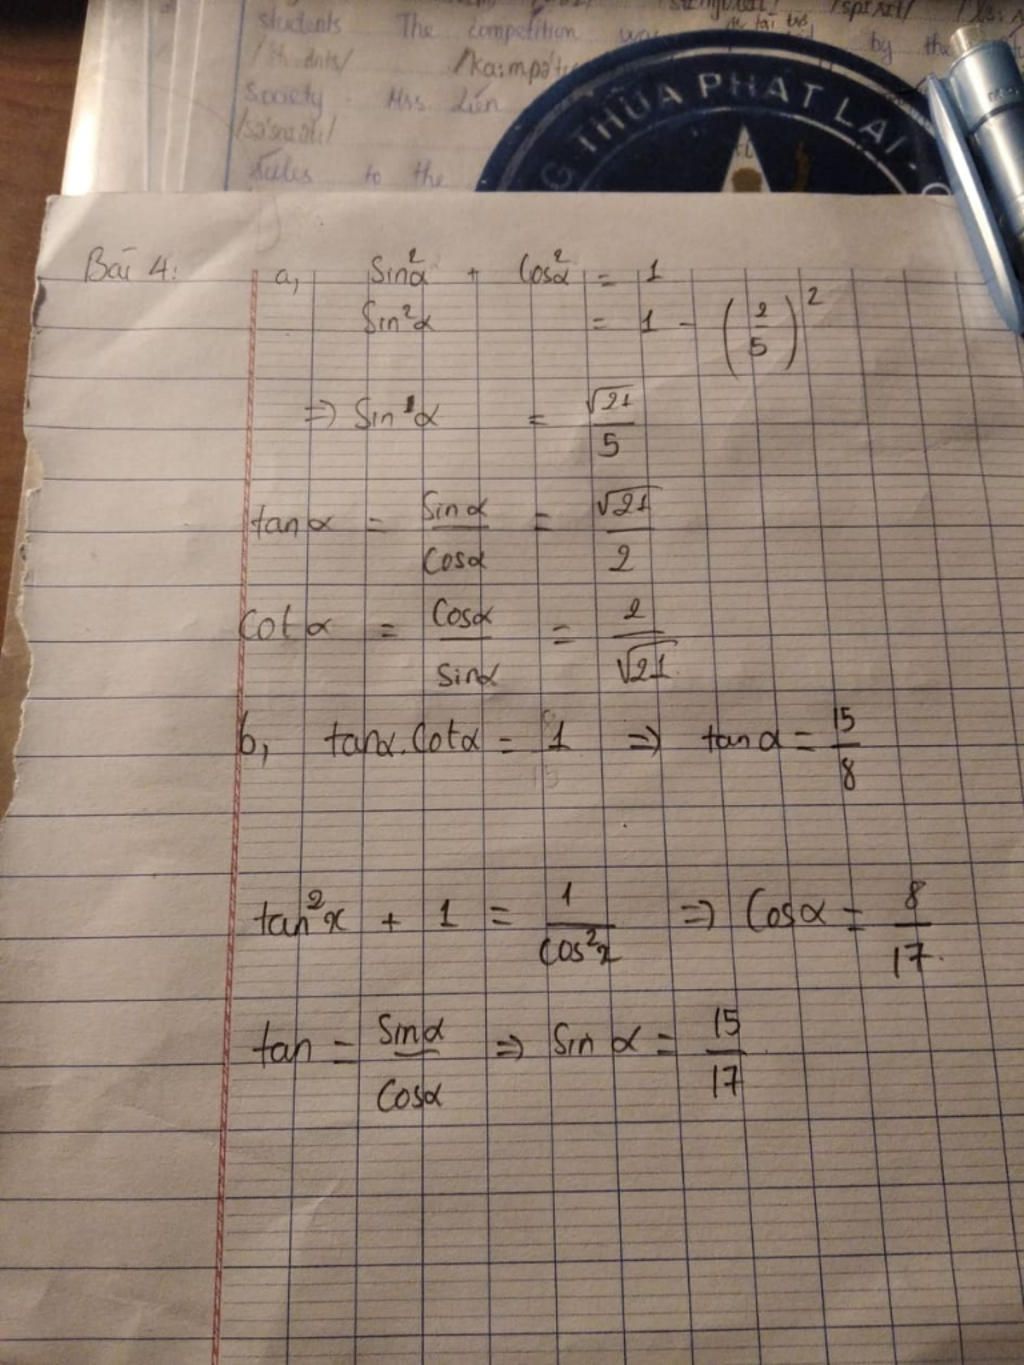 students The competition by the
/Ka:mpə
Society. Mss Liên
rules to the
G THỪA PHÁT LẠI
Bài 4:
a, Sin²α + Cos²α = 1
Sin²α = 1 - (2/5)²
=> Sin α = √21/5
tanα = Sinα/Cosα = √21/2
Cot α = Cosα/sinα = 2/√21
b, tanα.Cotα = 1 => tanα = 15/8
tan²x + 1 = 1/Cos²x => Cosα = 8/17.
tan = Sinα/Cosα => Sin α = 15/17